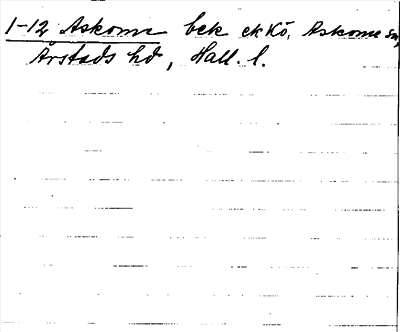 1-12 Askome bek ek Kö, Askome sn,
Årstads hd, Hall. l.